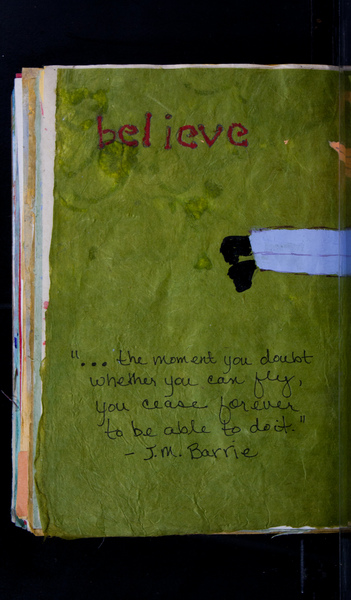 believe
"... the moment you doubt
whether you can fly,
you cease forever
to be able to do it."
- J.M. Barrie